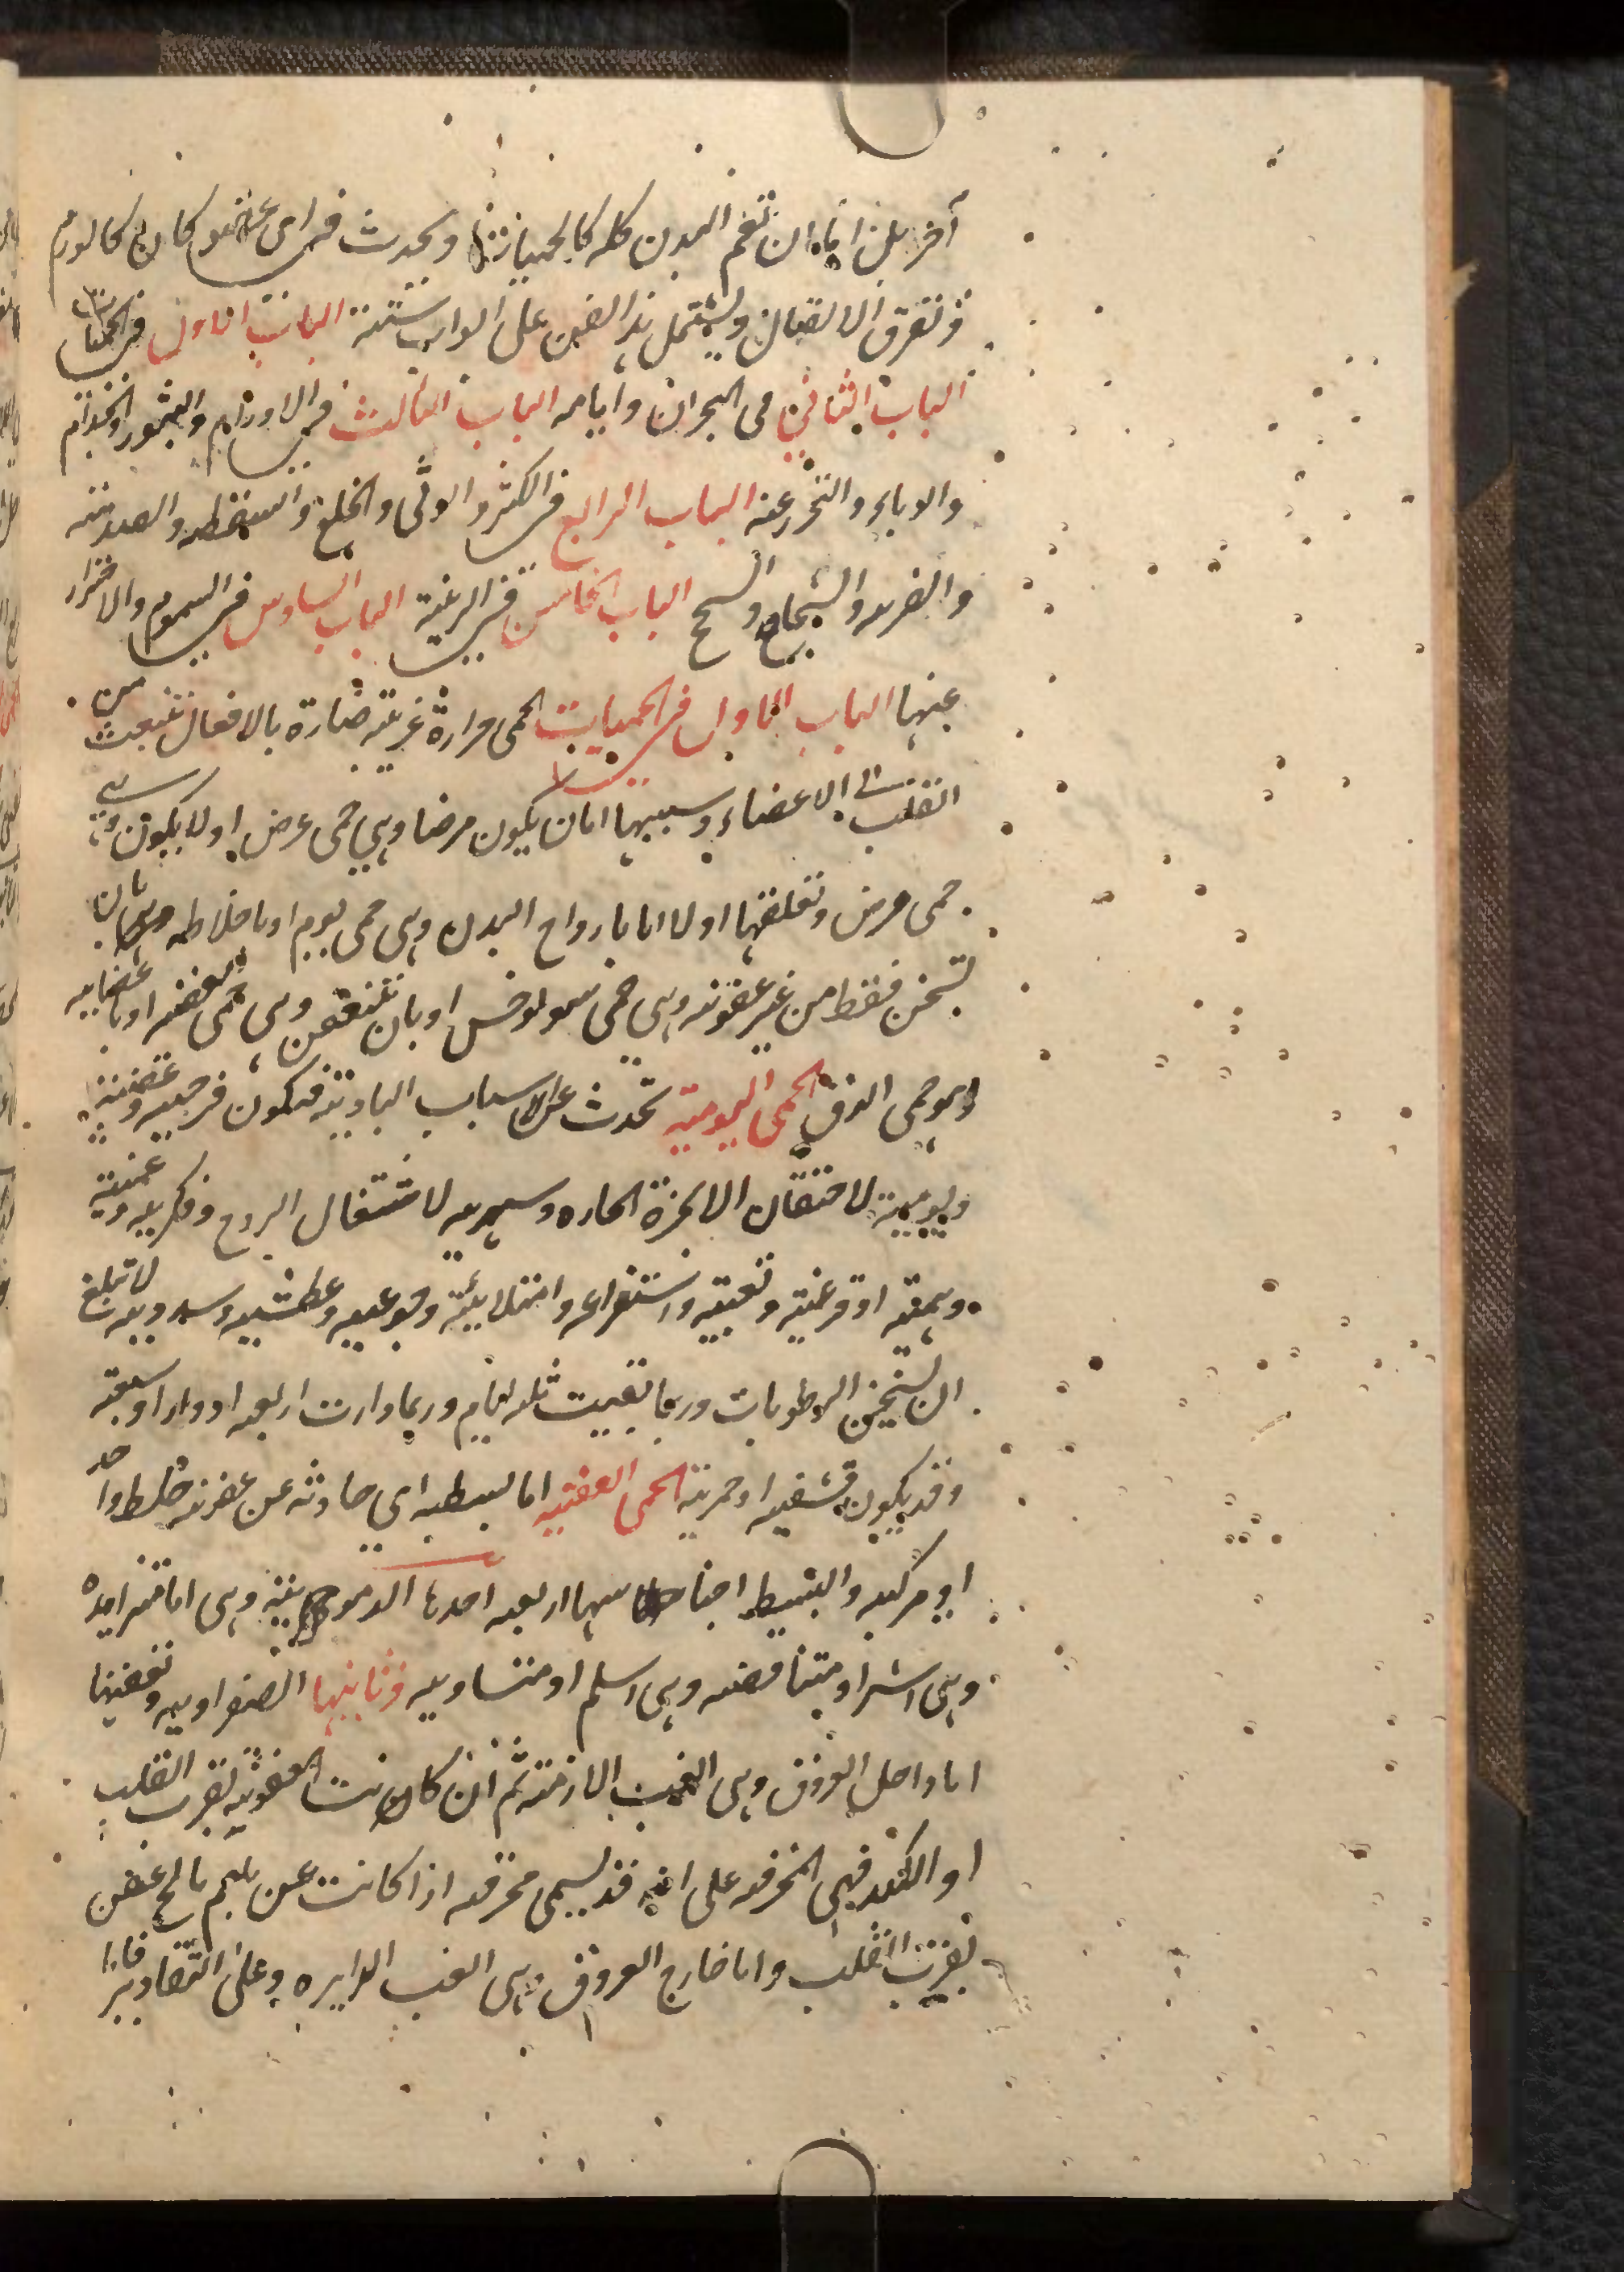 آخر بل اما ان تعم البدن كله كالحميات او يحدث في اى عضو كان كالورم
و تفرق الاتصال ويشتمل هذا الفن على ابواب ستة الباب الاول في الحميات
الباب الثاني فى البحران وايامه الباب الثالث في الاورام والبثور والجذام
والوباء والتحرز عنه الباب الرابع في الكسر والوثى والخلع والسقطه والصدمة
والضربه والشجاج والسحج الباب الخامس في الزينة الباب السادس في السموم والاحتراز
عنها الباب الاول في الحميات الحمى حرارة غريبة ضارة بالافعال تنبعث من
القلب الى الاعضاء وسببها اما ان يكون مرضا وهي حمى عرض او لا يكون وهي
حمى مرض وتعلقها اولا اما بارواح البدن وهى حمى يوم او باخلاطه بان
تسخن فقط من غير عفونه وهى حمى سونوخس او بان تتعفن وهى حمى العفنه او باعضايه
وهو حمى الدق الحمى اليومية تحدث عن الاسباب البادية فتكون فرحيه وغضبية
ونوميه لاحتقان الابخرة الحاره وسهريه لاشتغال الروح وفكريه وغمية
وهمية او فزعية وتعبية واستفراغيه وامتلائية وجوعيه وعطشيه وسدديه لا تبلغ
الى تسخين الرطوبات وربما بقيت ثلثه ايام وربما دارت اربعه ادوار او سبعة
وقد يكون قشفيه او خمرية الحمى العفنيه اما بسيطه اي حادثه عن عفونة خلط واحد
او مركبه والبسيط اجناسها اربعه احدها الدمويه وهى اما متزايده
وهى اشر او متناقصه وهى اسلم او متساويه وثانيها الصفراويه وتعفنها
اما داخل العروق وهى الغب اللازمة ثم ان كانت العفونة بقرب القلب
او الكبد فهى المحرقه على انه قد يسمى محرقه اذا كانت عن بلغم مالح عفن
بقرب القلب واما خارج العروق وهى الغب الدايره وعلى التقادير فاما